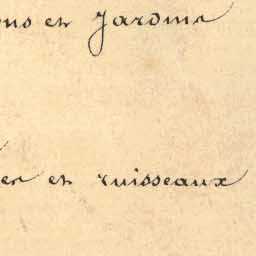 et Jardins
et ruisseaux